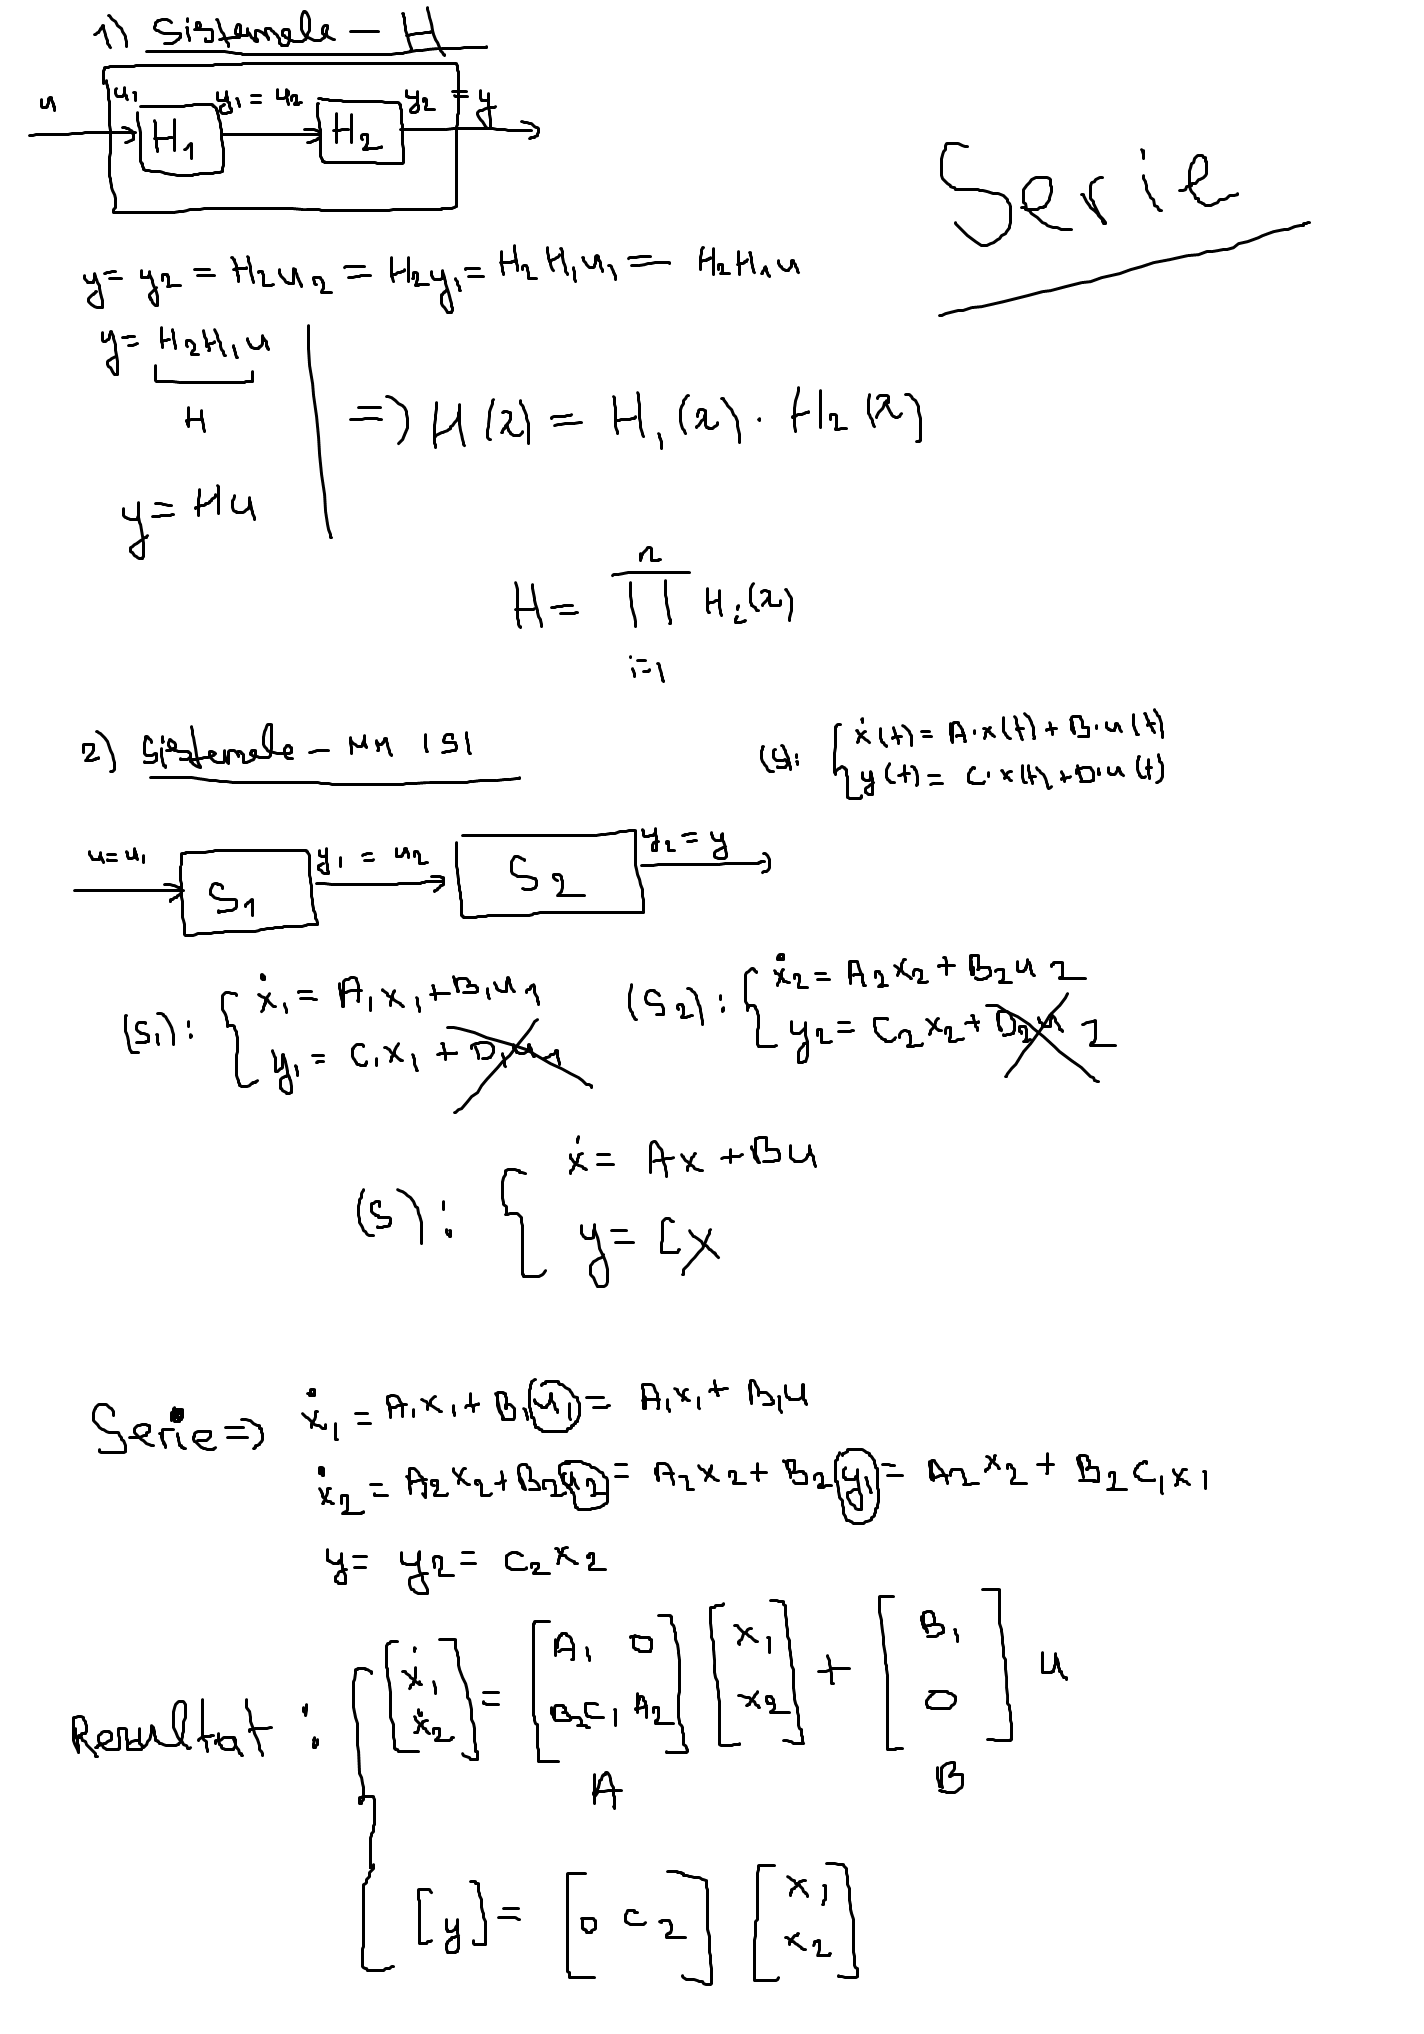 1) Sistemele - H
u u₁ H₁ y₁ = u₂ H₂ y₂ = y
Serie
y = y₂ = H₂u₂ = H₂y₁ = H₂H₁u₁ = H₂H₁u
y = H₂H₁u
H
=> H(z) = H₁(z) · H₂(z)
y = Hu
n
H = ∏ Hᵢ(z)
i=1
2) Sistemele - MM ISI
(S): { ẋ(t) = A·x(t) + B·u(t)
y(t) = C·x(t) + D·u(t)
u = u₁ S₁ y₁ = u₂ S₂ y₂ = y
(S₁): { ẋ₁ = A₁x₁ + B₁u₁
y₁ = C₁x₁ + D₁u₁
(S₂): { ẋ₂ = A₂x₂ + B₂u₂
y₂ = C₂x₂ + D₂u₂
(S): { ẋ = Ax + Bu
y = Cx
Serie => ẋ₁ = A₁x₁ + B₁u₁ = A₁x₁ + B₁u
ẋ₂ = A₂x₂ + B₂u₂ = A₂x₂ + B₂y₁ = A₂x₂ + B₂C₁x₁
y = y₂ = C₂x₂
Rezultat : { [ẋ₁ ẋ₂] = [A₁ 0 B₂C₁ A₂] [x₁ x₂] + [B₁ 0] u
A B
[y] = [0 C₂] [x₁ x₂]